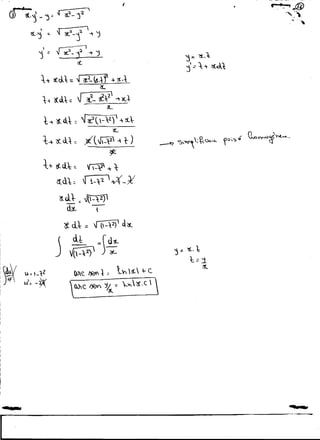 x.y' - y = √x²-y²
x.y' = √x²-y² + y
y' = √x²-y² + y / x
y = x.t
y' = t + xdt
t + xdt = √x²-(x.t)² + x.t / x
t + xdt = √x²-x²t² + x.t / x
t + xdt = √x²(1-t²) + xt / x
t + xdt = x(√1-t² + t) / x → simplificar pois é homogênea.
t + xdt = √1-t² + t
xdt = √1-t² + t - t
xdt / dx = √(1-t²) / 1
xdt = √(1-t²) dx
∫ dt / √(1-t²) = ∫ dx / x
y = x.t
t = y / x
u = 1-t²
u' = -2t
arc sen t = ln|x| + c
arc sen y/x = ln|x.c|